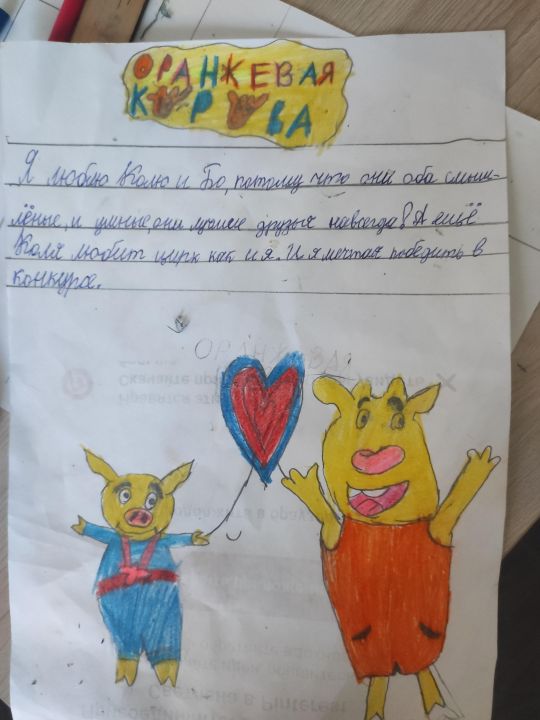 ОРАНЖЕВАЯ
КОРОВА
Я люблю Колю и Бо, потому что они оба смыш-
лёные, и умные, они лучшие друзья навсегда! А ещё
Коля любит цирк как и я. И я мечтаю победить в
конкурсе.
ОРАНЖЕВАЯ